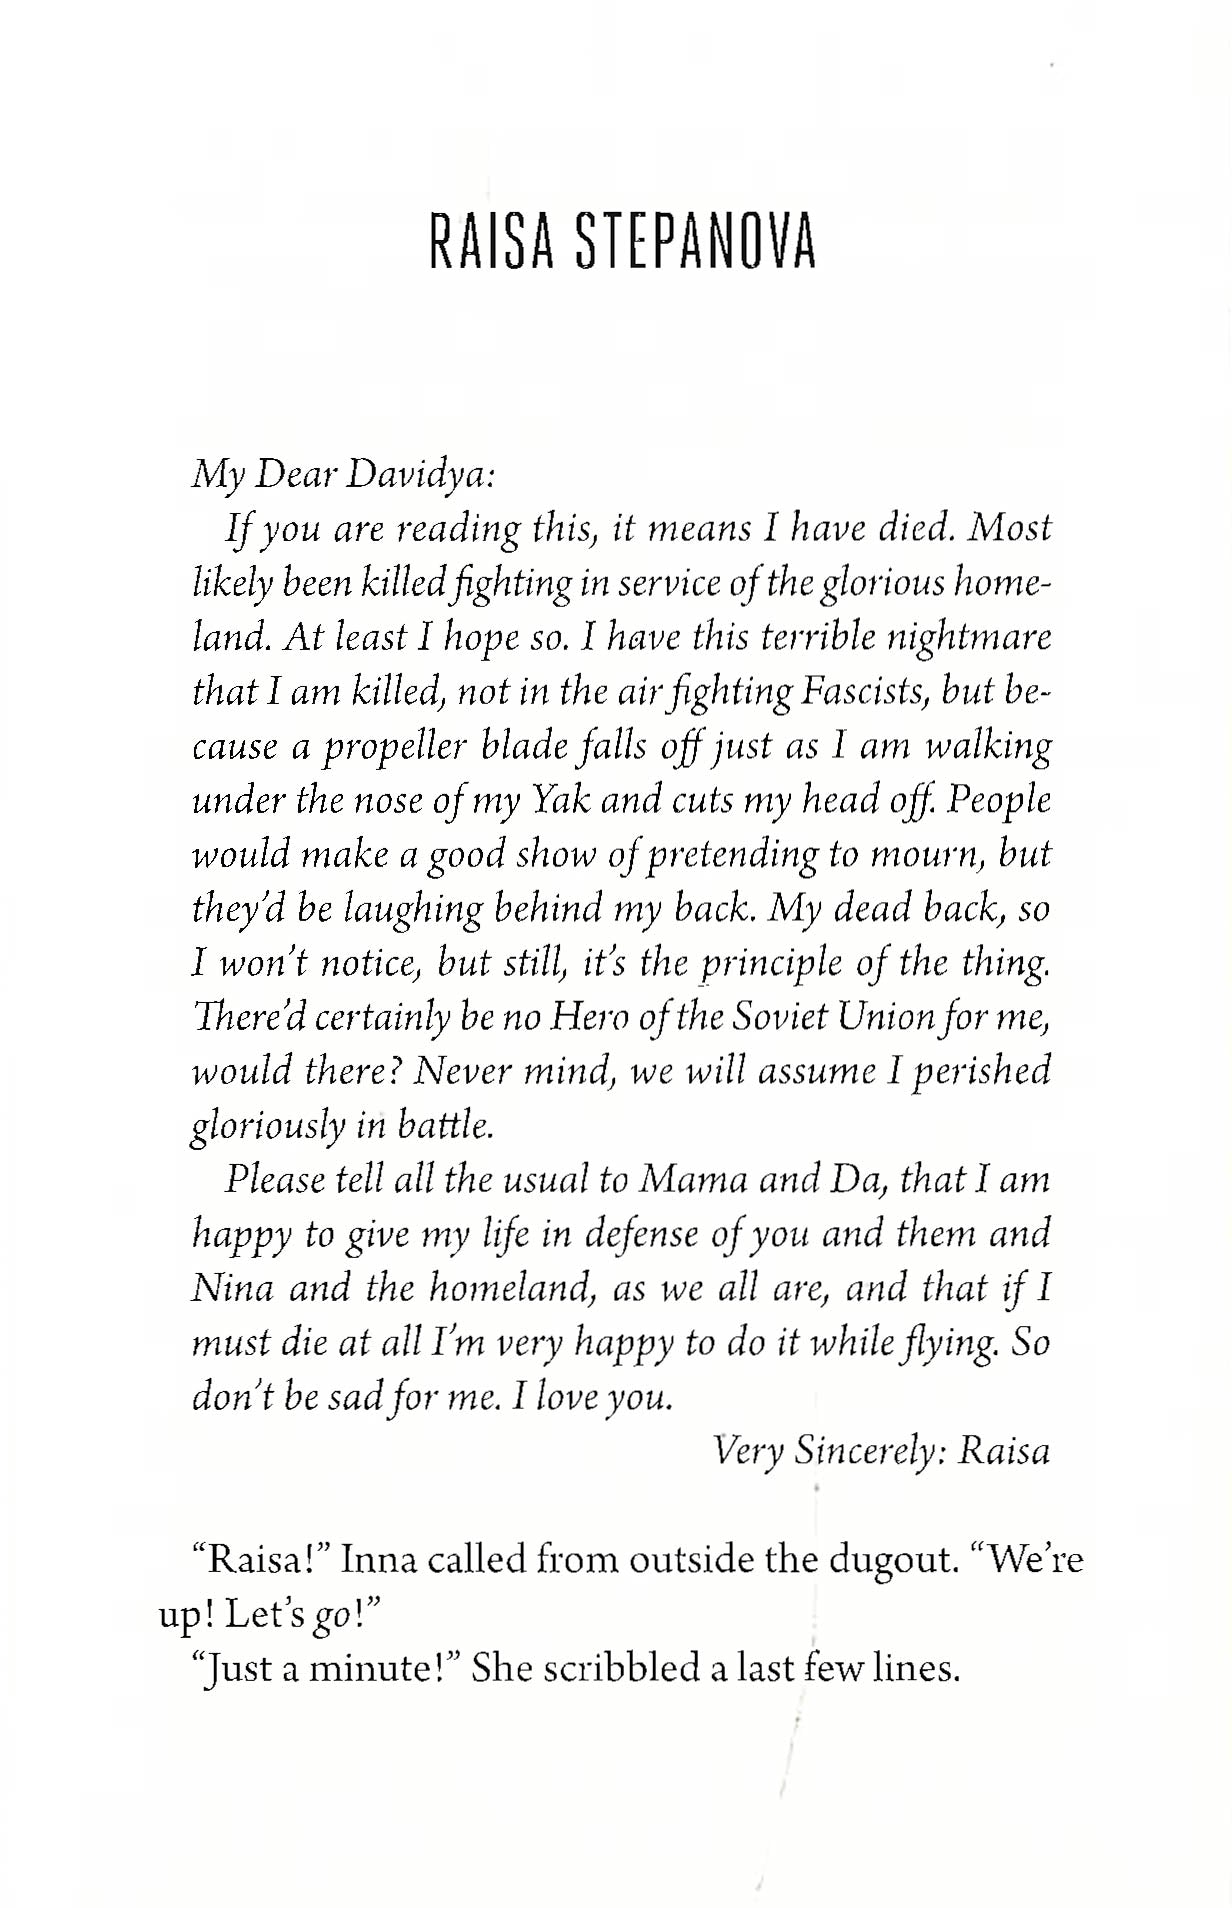 RAISA STEPANOVA
My Dear Davidya:
If you are reading this, it means I have died. Most
likely been killed fighting in service of the glorious home-
land. At least I hope so. I have this terrible nightmare
that I am killed, not in the air fighting Fascists, but be-
cause a propeller blade falls off just as I am walking
under the nose of my Yak and cuts my head off. People
would make a good show of pretending to mourn, but
they’d be laughing behind my back. My dead back, so
I won’t notice, but still, it’s the principle of the thing.
There’d certainly be no Hero of the Soviet Union for me,
would there? Never mind, we will assume I perished
gloriously in battle.
Please tell all the usual to Mama and Da, that I am
happy to give my life in defense of you and them and
Nina and the homeland, as we all are, and that if I
must die at all I’m very happy to do it while flying. So
don’t be sad for me. I love you.
Very Sincerely: Raisa
“Raisa!” Inna called from outside the dugout. “We’re
up! Let’s go!”
“Just a minute!” She scribbled a last few lines.